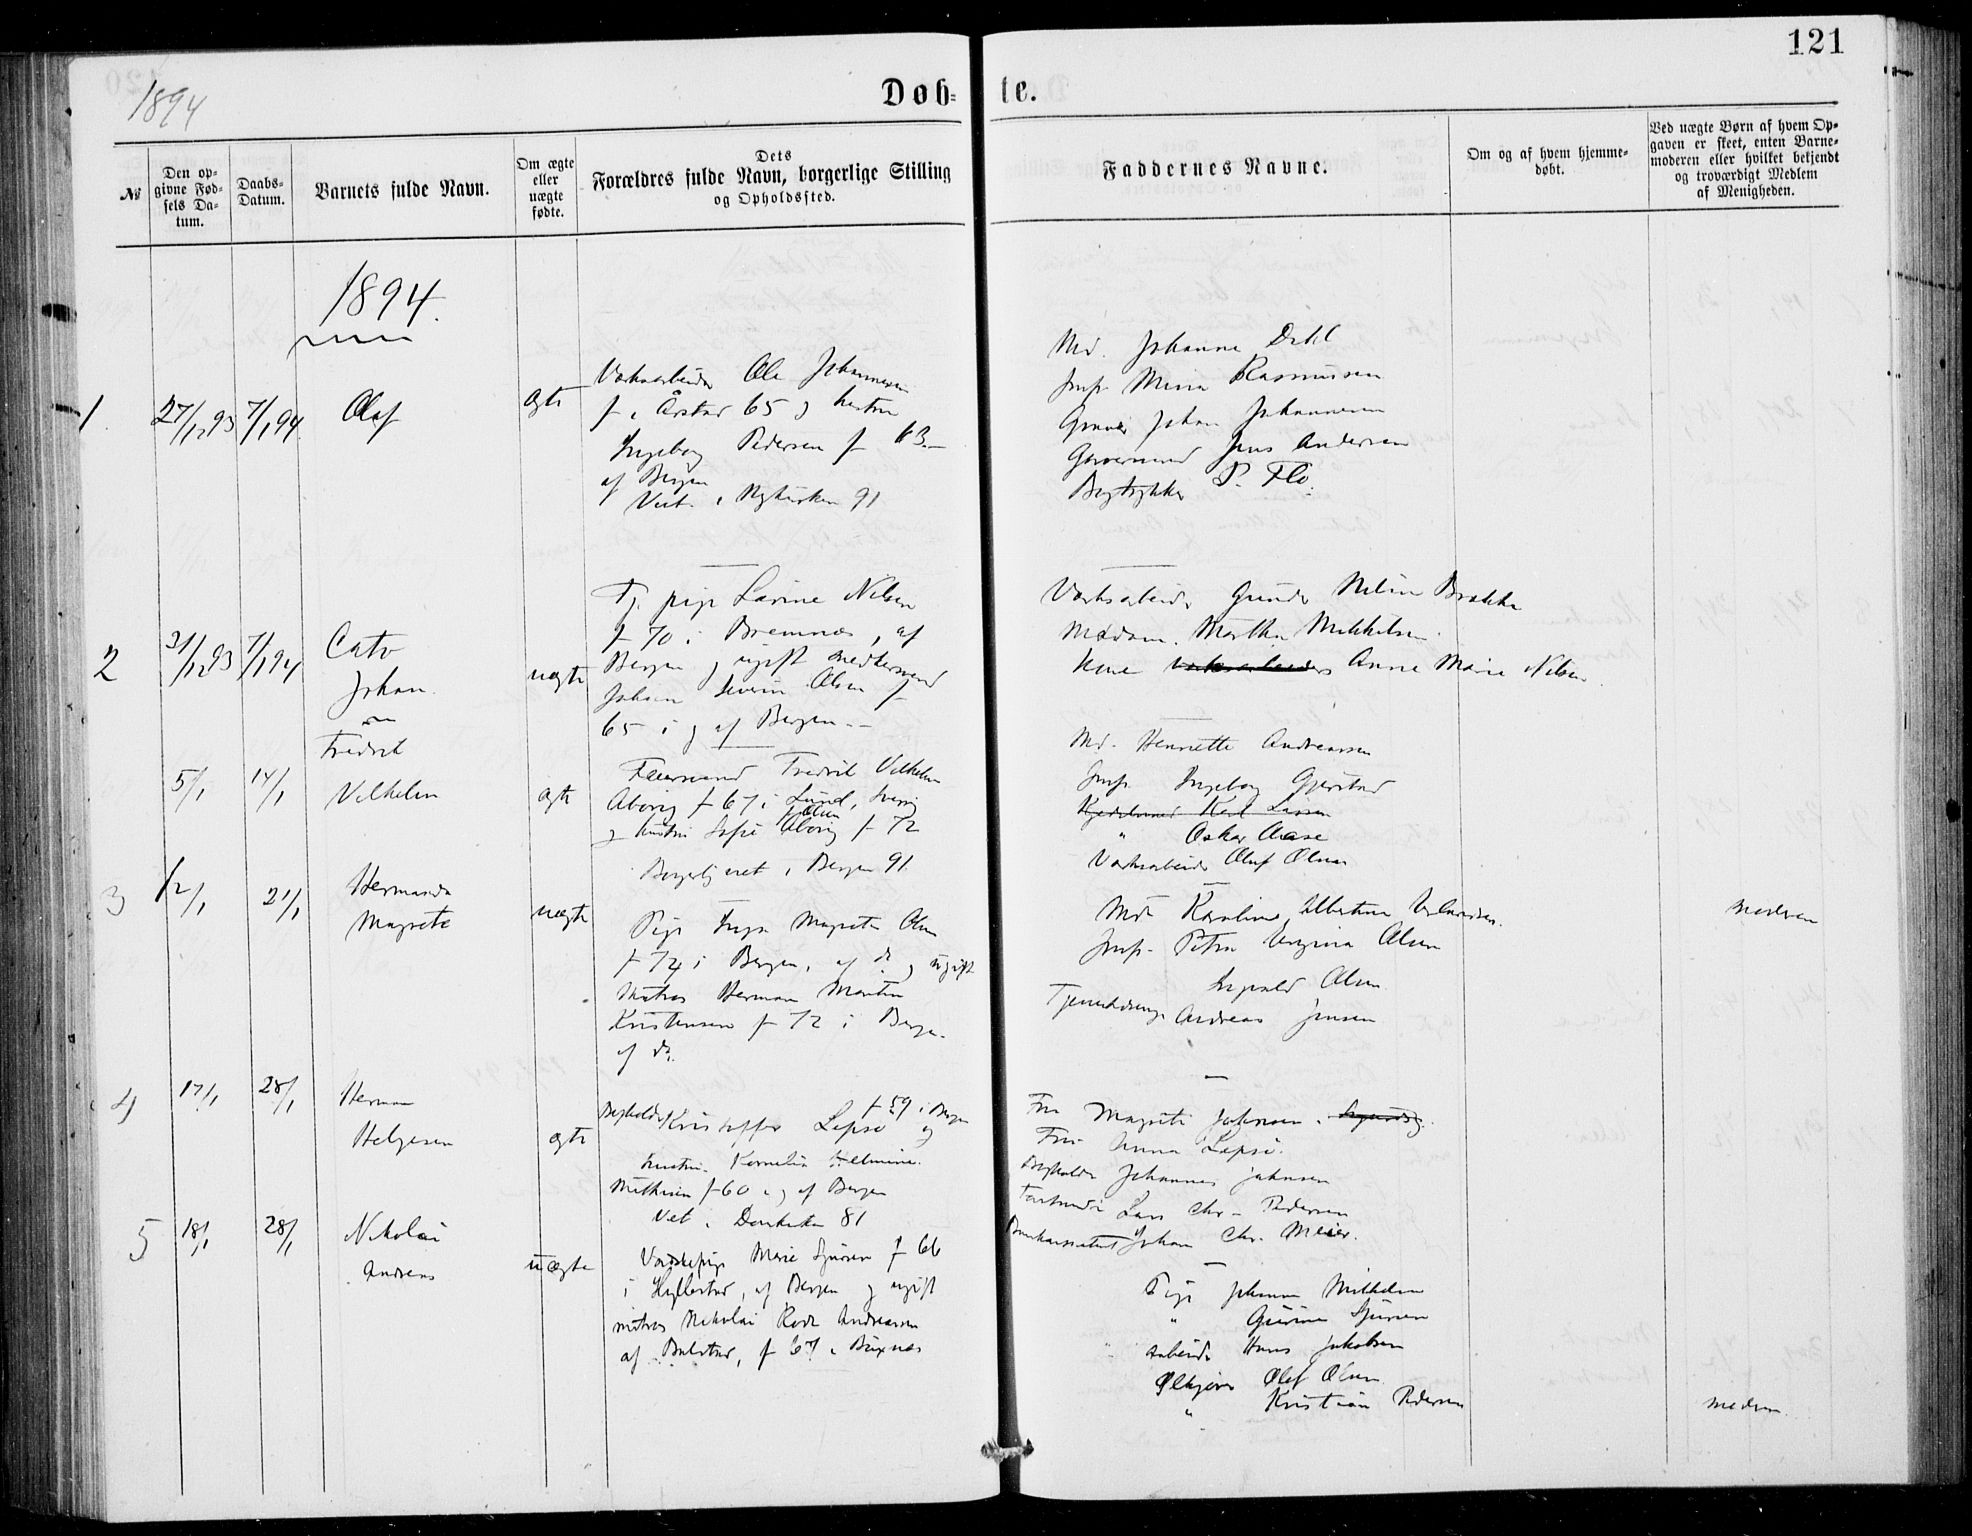 121
1894
Døb=te.
№
Den op-
givne Fød-
sels Da-
tum.
Daabs-
Datum.
Barnets fulde Navn.
Om ægte
eller
uægte
fødte.
Dets
Forældres fulde Navn, borgerlige Stilling
og Opholdssted.
Faddernes Navne.
Om og af hvem hjemme-
døbt.
Ved uægte Børn af hvem Op-
gaven er skeet, enten Barne-
moderen eller hvilket bekjendt
og troværdigt Medlem
af Menigheden.
1894.
1 27/12 93 7/1 94 Olaf ægte
Værksarbeider Ole Johannesen
f i Årstad 65 og hustru
Ingeborg Pedersen f 63.
af Bergen
Viet i Nykirken 91
Md. Johanne Dahl
Jmf. Mina Rasmussen
Johan Johannesen
Jens Andersen
Bogtrykker P. Flo.
2 31/12 93 7/1 94 Cato
Johan uægte
Tj. pige Larine Nilsen
f 70 i Bremnes, af
Bergen og ugift
Johan Severin Olsen f
65 i og af Bergen.
Værksarbeider Nilsen Brække
Madam Martha Mikkelsen.
Kone Anne Marie Nilsen.
5/1 14/1 Fredrik
Vilhelm ægte
Fredrik Vilhelm
Åborg f 67 i Lund, Sverig
og hustru Sofie Åborg f Olsen f 72
Borgerlig viet i Bergen 91.
Md. Henriette Andreassen
Jmf. Ingeborg Gjerstad
Karl Larsen
" Oskar Aase
Værksarbeider Oluf Olsen
3 12/1 21/1 Hermanda
Magrete uægte
Pige Inga Magrete Olsen
f 74 i Bergen, af do og ugift
Matros Herman Martin
Kristensen f 72 i Bergen.
af do.
Md Karoline Albertine
Jmf. Petra Olsen
Olsen
Tjenestedreng Andreas Jensen
moderen
4 17/1 28/1 Herman
Helgesen ægte
Bogholder Kristoffer Lepsø f 59 i Bergen og
hustru Kornelia
Mathisen f 60 i og af Bergen
Viet i Domkirken 81
Fru Magrete Johnsen
Fru Anna Lepsø.
Bogholder Johannes Johnsen
Lars Chr. Pedersen
Johan Chr. Meier.
5 18/1 28/1 Nikolai
Andreas uægte
Vaskepige Marie Sjursen f 66
i Hyllestad, af Bergen og ugift
matros Nikolai Andreassen
af Balstad, f 67 i Buxnes
Pige Johanne
" Gurine Sjursen
Arbeider Hans Jakobsen
Ølkjører Olaf Olsen
" Kristian Pedersen
moderen.